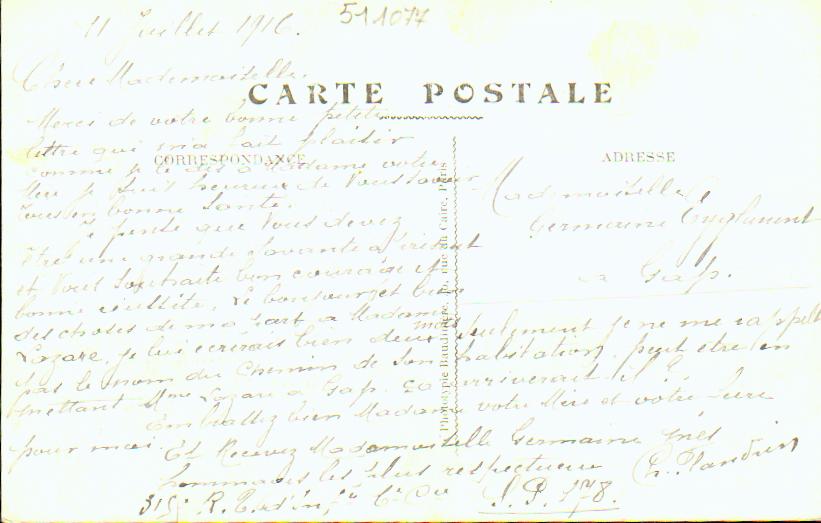 11 Juillet 1916.
511077
CARTE POSTALE
CORRESPONDANCE
ADRESSE
Chere Mademoiselle.
Merci de votre bonne petite
lettre qui m'a fait plaisir
comme je le dis a Madame votre
Mere je suis heureux de Vous savoir
tous en bonne Santé.
Je pense que Vous devez
être une grande Savante a present
et Vous Souhaite bon courage et
bonne réussite. Le bonjour et bien
des choses de ma part a Madame
Lazare, je lui ecrirais bien deux mots Seulement je ne me rappelle
pas le nom du Chemin de Son habitation, peut etre en
mettant Mme Lazare a Gap. ça arriverait il ?
Embrassez bien Madame votre Mère et votre
pour moi Et Recevez Mademoiselle Germaine mes
hommages les plus respectueux
315e R. S.P. 178.
Mademoiselle
Germaine
a Gap.
Phototypie Baudinière, rue du Caire, Paris